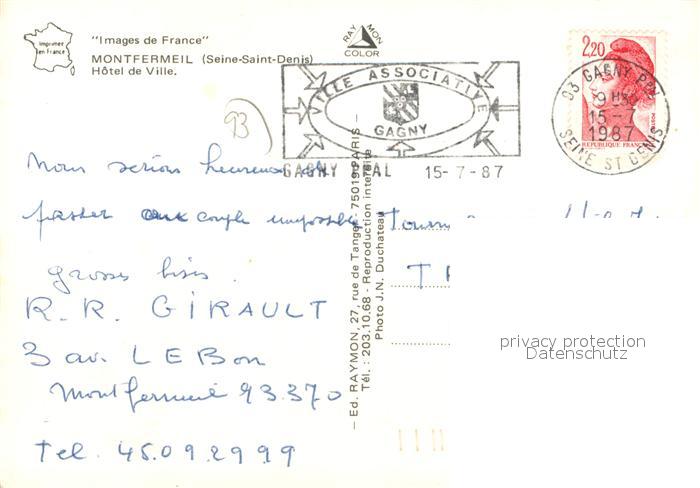 Imprimée en France
"Images de France"
MONTFERMEIL (Seine-Saint-Denis)
Hôtel de Ville.
RAYMON
COLOR
VILLE ASSOCIATIVE
GAGNY
GAGNY PPAL 15-7-87
2,20
POSTES
REPUBLIQUE FRANÇAISE
93 GAGNY PPAL
9H
15-7
1987
SEINE ST DENIS
93
Nous serions heureux de
passer
grosses bises.
R. R. GIRAULT
3 av. LEBon
Montfermeil 93.370
Tel. 45.09.29.99
— Ed. RAYMON, 27, rue de Tanger - 75019 PARIS -
Tél. : 203.10.68 - Reproduction interdite
Photo J.N. Duchateau
privacy protection
Datenschutz